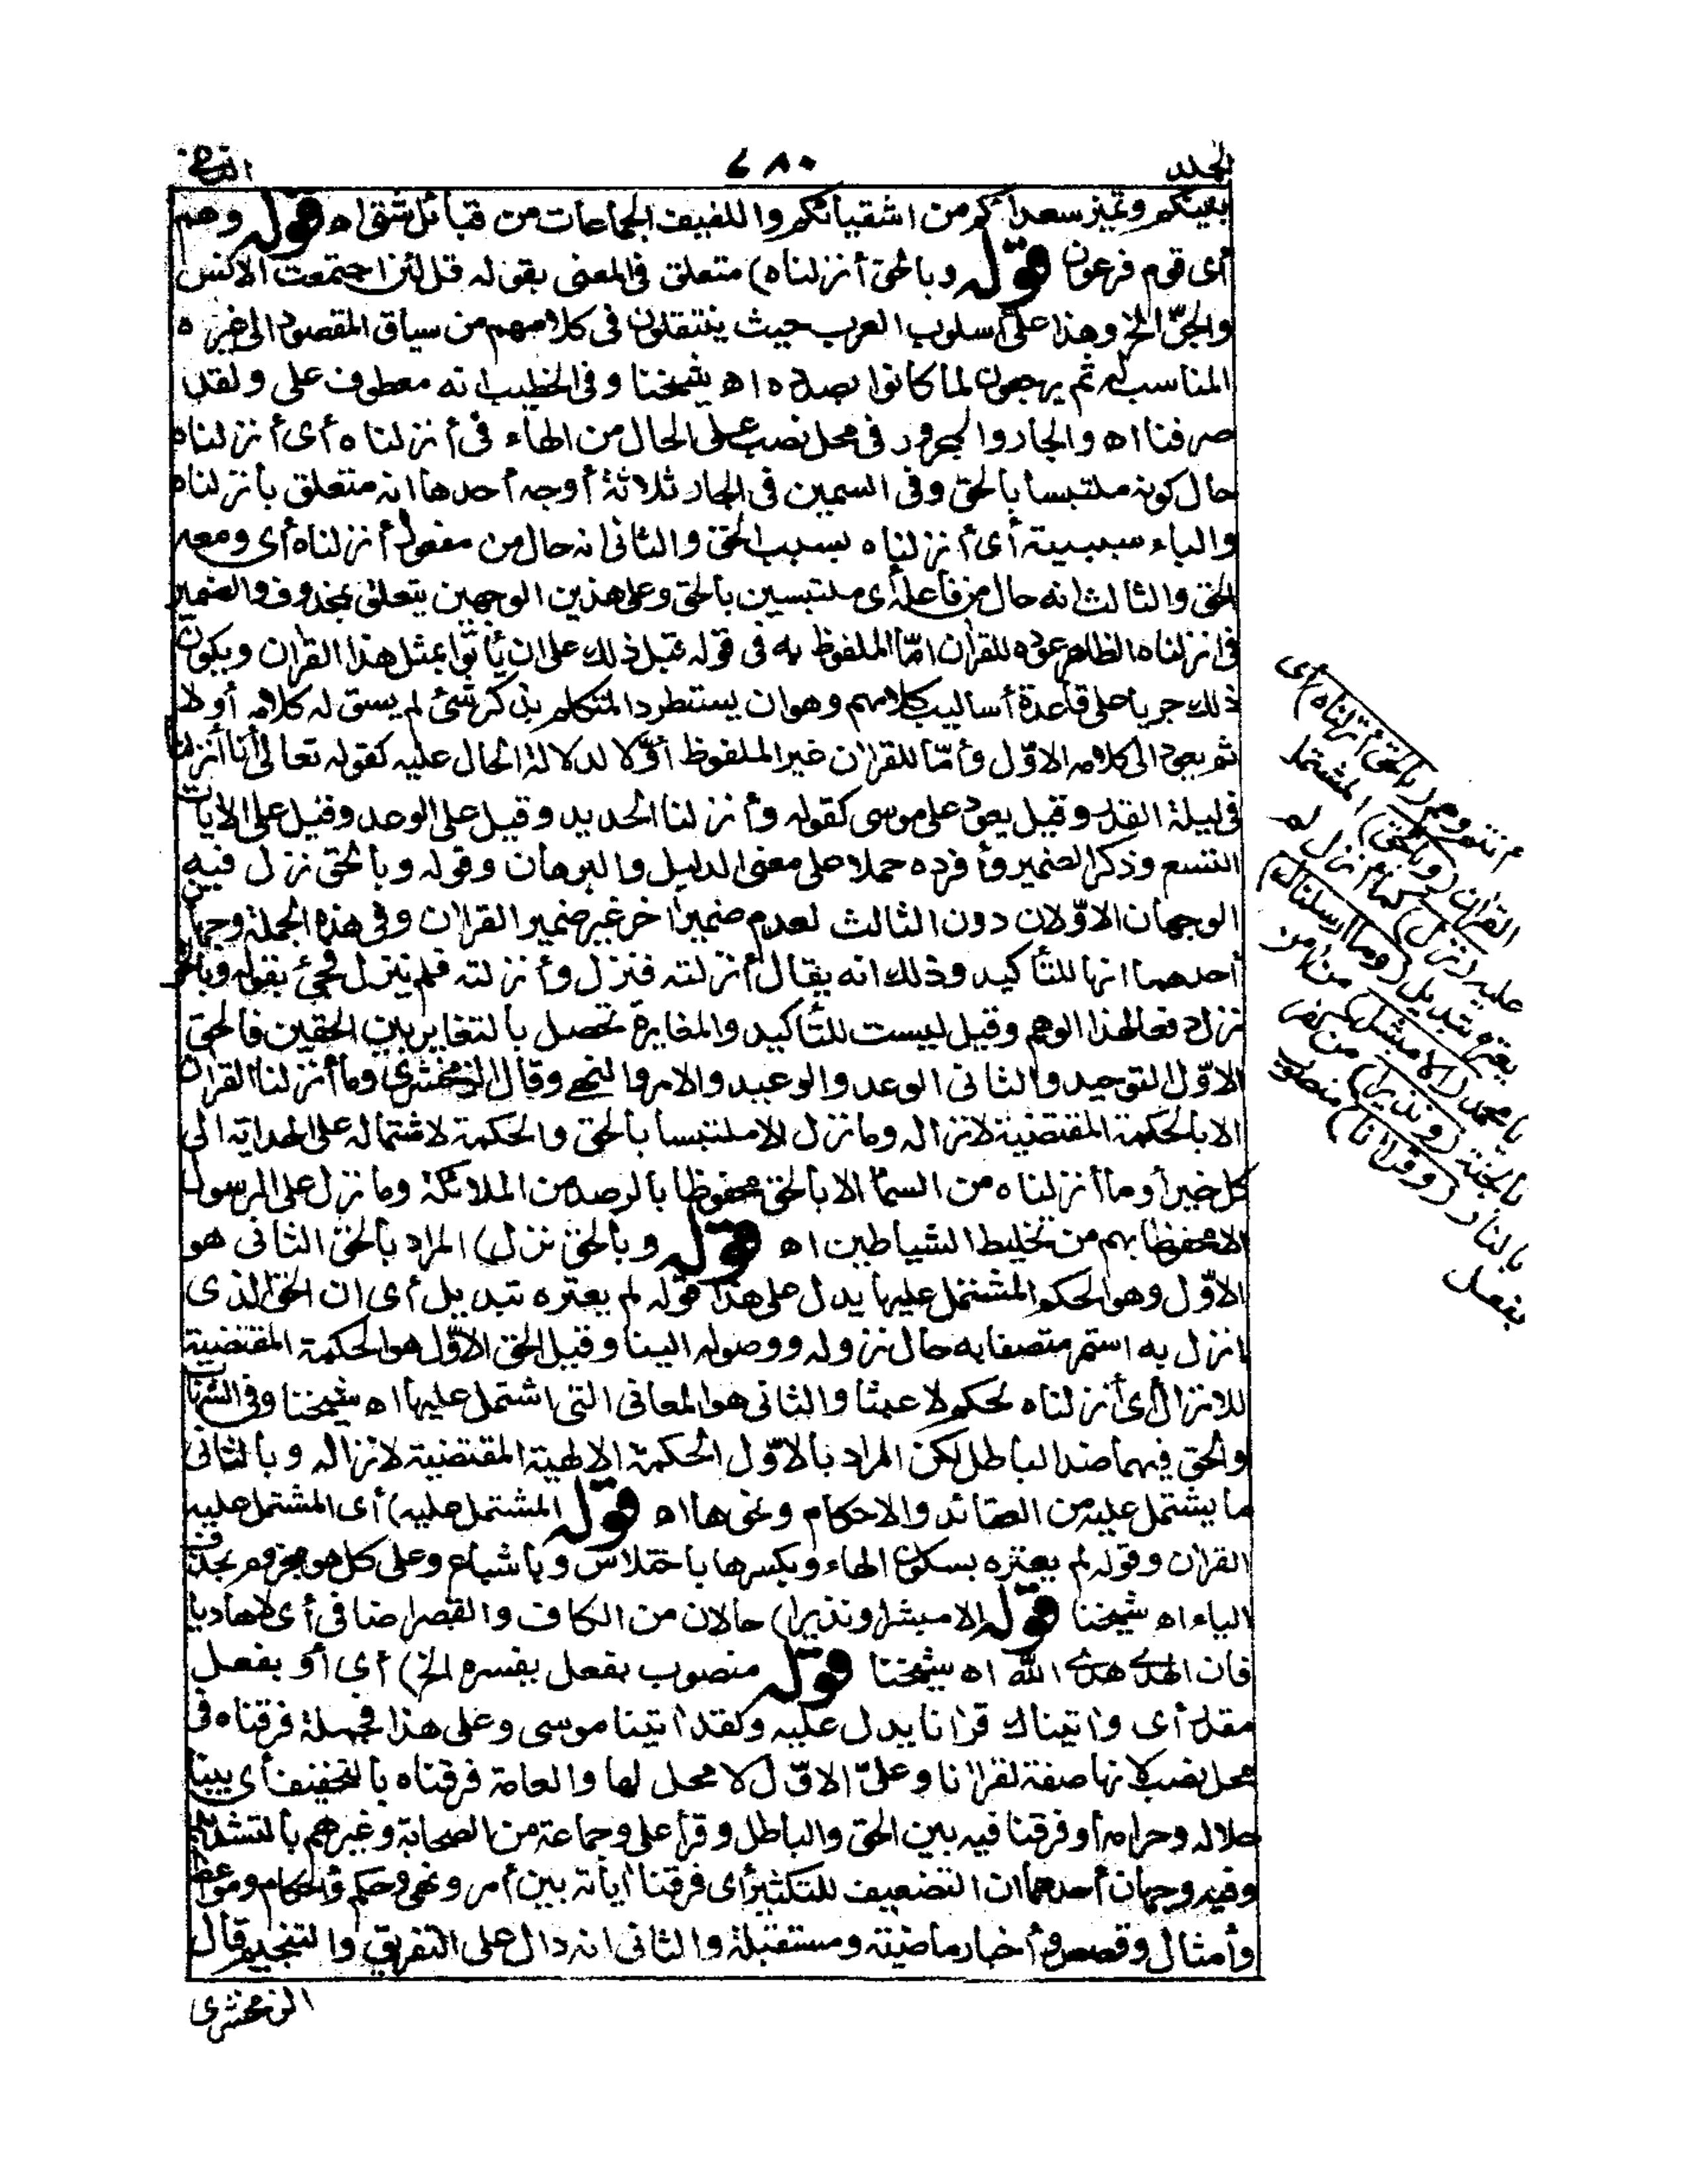 المجلد ٦٨٠ الثانى
بينكم ونميز سعداءكم من اشقيائكم واللفيف الجماعات من قبائل شتى اه قوله وهم
أى قوم فرعون قوله وبالحق أنزلناه) متعلق فى المعنى بقوله قل لئن اجتمعت الانس
والجنّ الخ وهذا على أسلوب العرب حيث ينتقلون فى كلامهم من سياق المقصود الى غيره
المناسب له ثم يرجعون لما كانوا بصدده اه شيخنا وفى الخطيب انه معطوف على ولقد
صرفنا اه والجار والمجرور فى محل نصب على الحال من الهاء فى أنزلناه أى أنزلناه
حال كونه ملتبسا بالحق وفى السمين فى الجار ثلاثة أوجه أحدها انه متعلق بأنزلناه
والباء سببية أى أنزلناه بسبب الحق والثانى انه حال من مفعول أنزلناه أى ومعه
الحق والثالث انه حال من فاعله أى ملتبسين بالحق وعلى هذين الوجهين يتعلق بمحذوف والضمير
فى انزلناه الظاهر عوده للقران امّا الملفوظ به فى قوله قبل ذلك على ان يأتوا بمثل هذا القران ويكون
ذلك جريا على قاعدة أساليب كلامهم وهو ان يستطرد المتكلم بذكر شئ لم يسق له كلامه أولا
ثم يعود الى كلامه الاوّل وأمّا للقران غير الملفوظ أوّلا لدلالة الحال عليه كقوله تعالى أنا أنزلناه
فى ليلة القدر وقيل يعود على موسى كقوله وأنزلنا الحديد وقيل على الوعد وقيل على الأيات
التسع وذكر الضمير وأفرده حملا على معنى الدليل والبرهان وقوله وبالحق نزل فيه
الوجهان الاوّلان دون الثالث لعدم ضمير اخر غير ضمير القران وفى هذه الجملة وجهان
أحدهما انها للتأكيد وذلك انه يقال أنزلته فنزل وأنزلته فلم ينزل فجئ بقوله وبالحق
نزل دفعا لهذا الوهم وقيل ليست للتأكيد والمغايرة تحصل بالتغاير بين الحقين فالحق
الاوّل التوحيد والثانى الوعد والوعيد والامر والنهى وقال الزمخشرى وما أنزلنا القران
الا بالحكمة المقتضية لانزاله وما نزل الا ملتبسا بالحق والحكمة لاشتماله على الهداية الى
كل خير أو ما أنزلناه من السما الا بالحق محفوظا بالرصد من الملائكة وما نزل على الرسول
الا محفوظا بهم من تخليط الشياطين اه قوله وبالحق نزل) المراد بالحق الثانى هو
الاوّل وهو الحكم المشتمل عليها يدل على هذا قوله لم يعتره تبديل أى ان الحق الذى
انزل به استمر متصفا به حال نزوله ووصوله الينا وقيل الحق الاوّل هو الحكمة المقتضية
للانزال أى أنزلناه لحكم لا عبثا والثانى هو المعانى التى اشتمل عليها اه شيخنا وفى الشهاب
والحق فيهما ضد الباطل لكن المراد بالاوّل الحكمة الالهية المقتضية لانزاله وبالثانى
ما يشتمل عليه من العقائد والاحكام ونحوها اه قوله المشتمل عليه) أى المشتمل عليه
القران وقوله لم يعتره بسكون الهاء وبكسرها باختلاس وباشباع وعلى كل هو مجزوم بحذف
الياء اه شيخنا قوله الا مبشرا ونذيرا) حالان من الكاف والقصر اضافى أى لا هاديا
فان الهدى هدى الله اه شيخنا قوله منصوب بفعل يفسره الخ) أى أو بفعل
مقدر أى واتيناك قرانا يدل عليه ولقد اتينا موسى وعلى هذا فجملة فرقناه فى
محل نصب لانها صفة لقرانا وعلى الاوّل لا محل لها والعامة فرقناه بالتخفيف أى بينا
حلاله وحرامه أو فرقنا فيه بين الحق والباطل وقرأ على وجماعة من الصحابة وغيرهم بالتشديد
وفيه وجهان أحدهما ان التضعيف للتكثير أى فرقنا اياته بين أمر ونهى وحكم وأحكام ومواعظ
وأمثال وقصص وأخبار ماضية ومستقبلة والثانى انه دال على التفريق والتنجيم قال
الزمخشرى
م تتموهم (بالحق أنزلناه) أى
القران (وبالحق) المشتمل
عليه (نزل) كما نزل لم
يعتره تبديل (وما ارسلناك)
يا محمد (الا مبشرا) من امن
بالجنة (ونذيرا) من كفر
بالنار (وقرانا) منصوب
بفعل